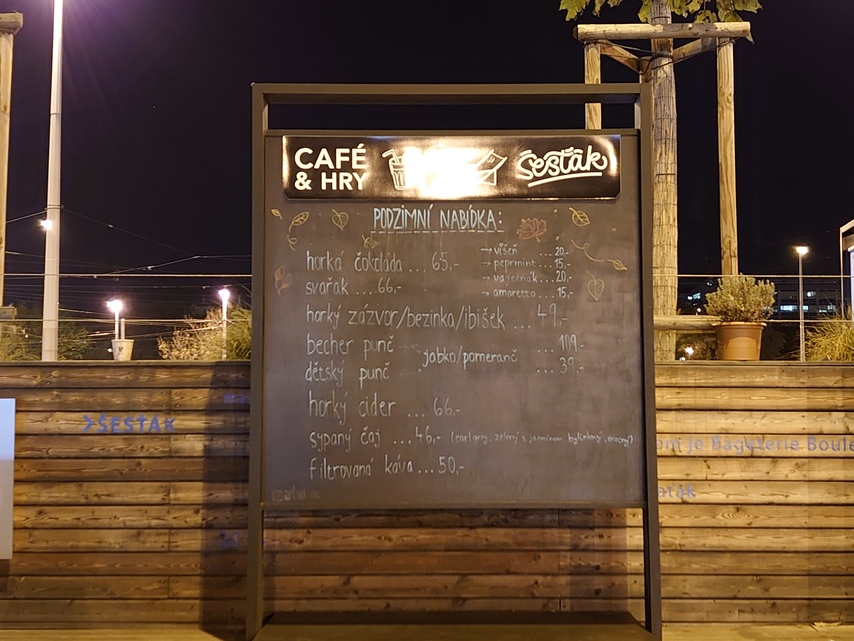 CAFÉ
& HRY
Šesťák
PODZIMNÍ NABÍDKA:
horká čokoláda ... 65,-
→ višeň ... 20,-
→ peprmint ... 15,-
→ vaječňák ... 20,-
→ amaretto ... 15,-
svařák ... 66,-
horký zázvor/bezinka/ibišek ... 49,-
becher punč ... 109,-
jabko/pomeranč
dětský punč ... 39,-
horký cider ... 66,-
sypaný čaj ... 46,- (earl grey, zelený s jasmínem, bylinkový, ovocný)
filtrovaná káva ... 50,-
>ŠESŤÁK
je Bageterie Boule